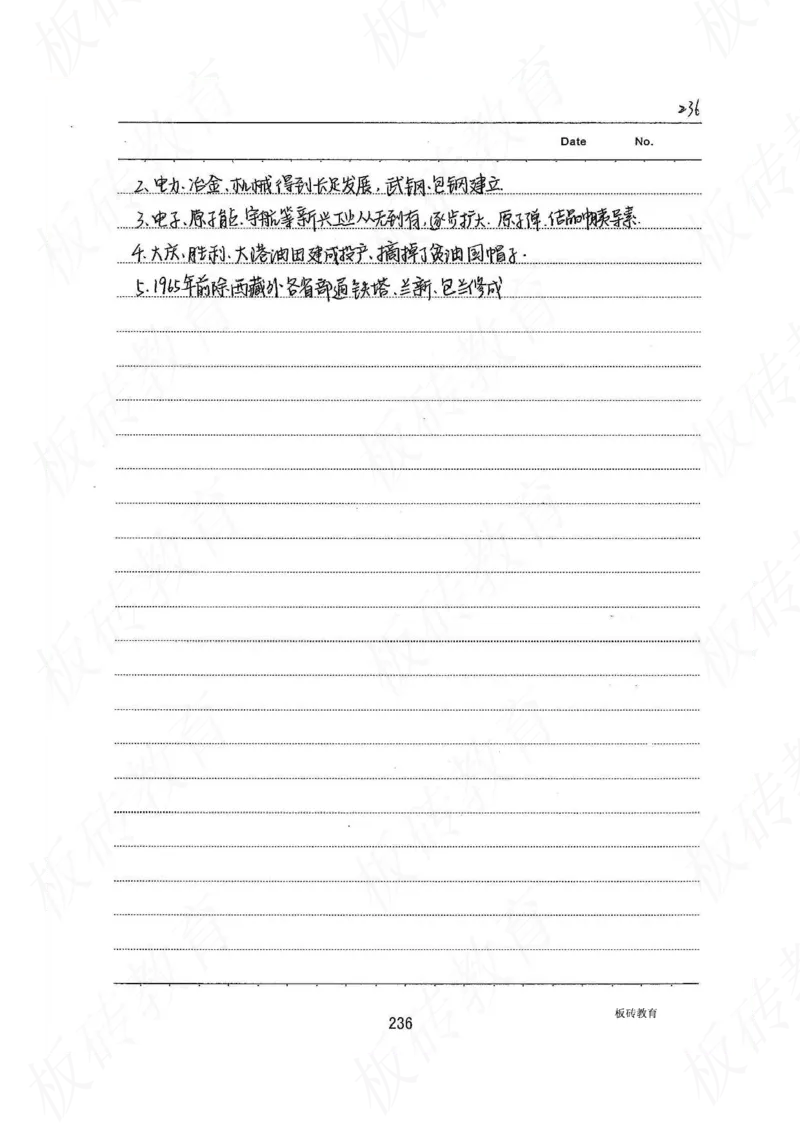 236
Date No.
2、电力、冶金、机械得到长足发展，武钢、包钢建立
3、电子、原子能、宇航等新兴工业从无到有，逐步扩大. 原子弹、结晶牛胰岛素.
4、大庆、胜利、大港油田建成投产、摘掉了贫油国帽子.
5、1965年前除西藏外各省部通铁塔、兰新、包兰修成
236
板砖教育